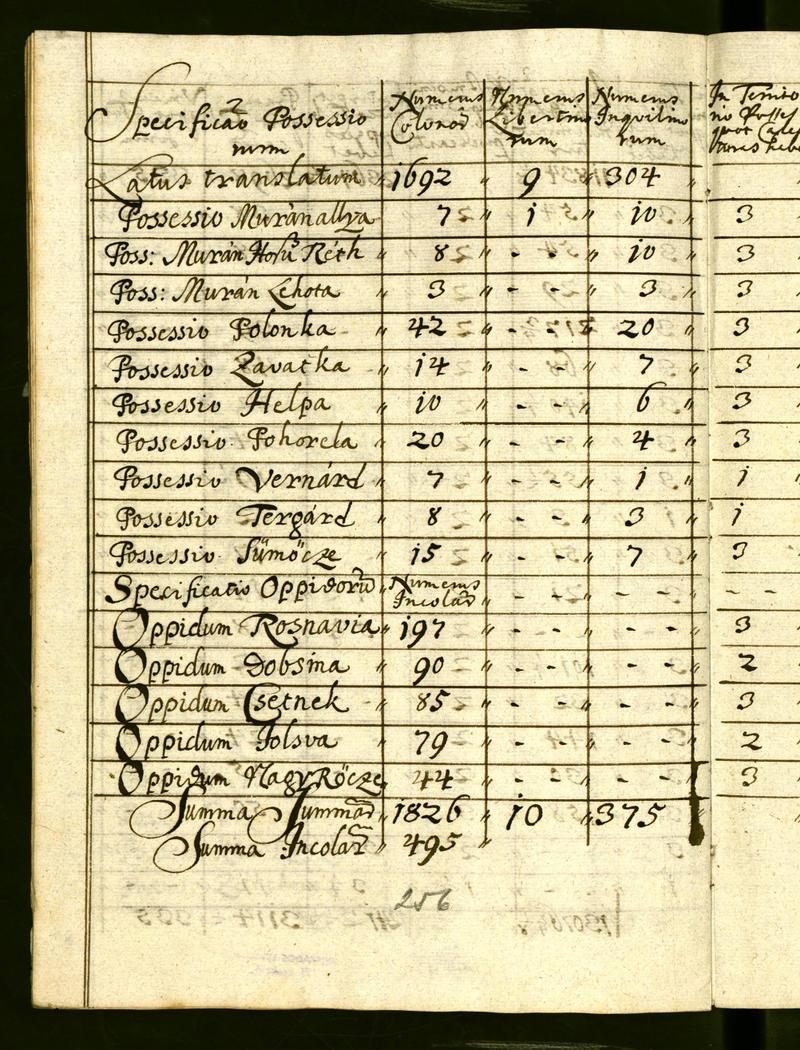 Specificao Possessio Numerus Numerus Numerus In Territo
num Colonor Libertino Inquilino rio Posses
rum rum quot
Latus translatum 1692 9 304
Possessio Muránallya 7 1 10 3
Poss: Murán Hosu Réth 8 - - 10 3
Poss: Murán Lehota 3 - - 3 3
Possessio Polonka 42 - - 20 3
Possessio Zavatka 14 - - 7 3
Possessio Helpa 10 - - 6 3
Possessio Pohorela 20 - - 4 3
Possessio Vernárd 7 - - 1 1
Possessio Tergárd 8 - - 3 1
Possessio Sümöcze 15 - - 7 3
Specificatio Oppidorũ Numerus Incolar - - - - - -
Oppidum Rosnavia 197 - - - - 3
Oppidum Dobsina 90 - - - - 2
Oppidum Csetnek 85 - - - - 3
Oppidum Jolsva 79 - - - - 2
Oppidum Nagy Röcze 44 - - - - 3
Summa Summar 1826 10 375
Summa Incolar 495
256